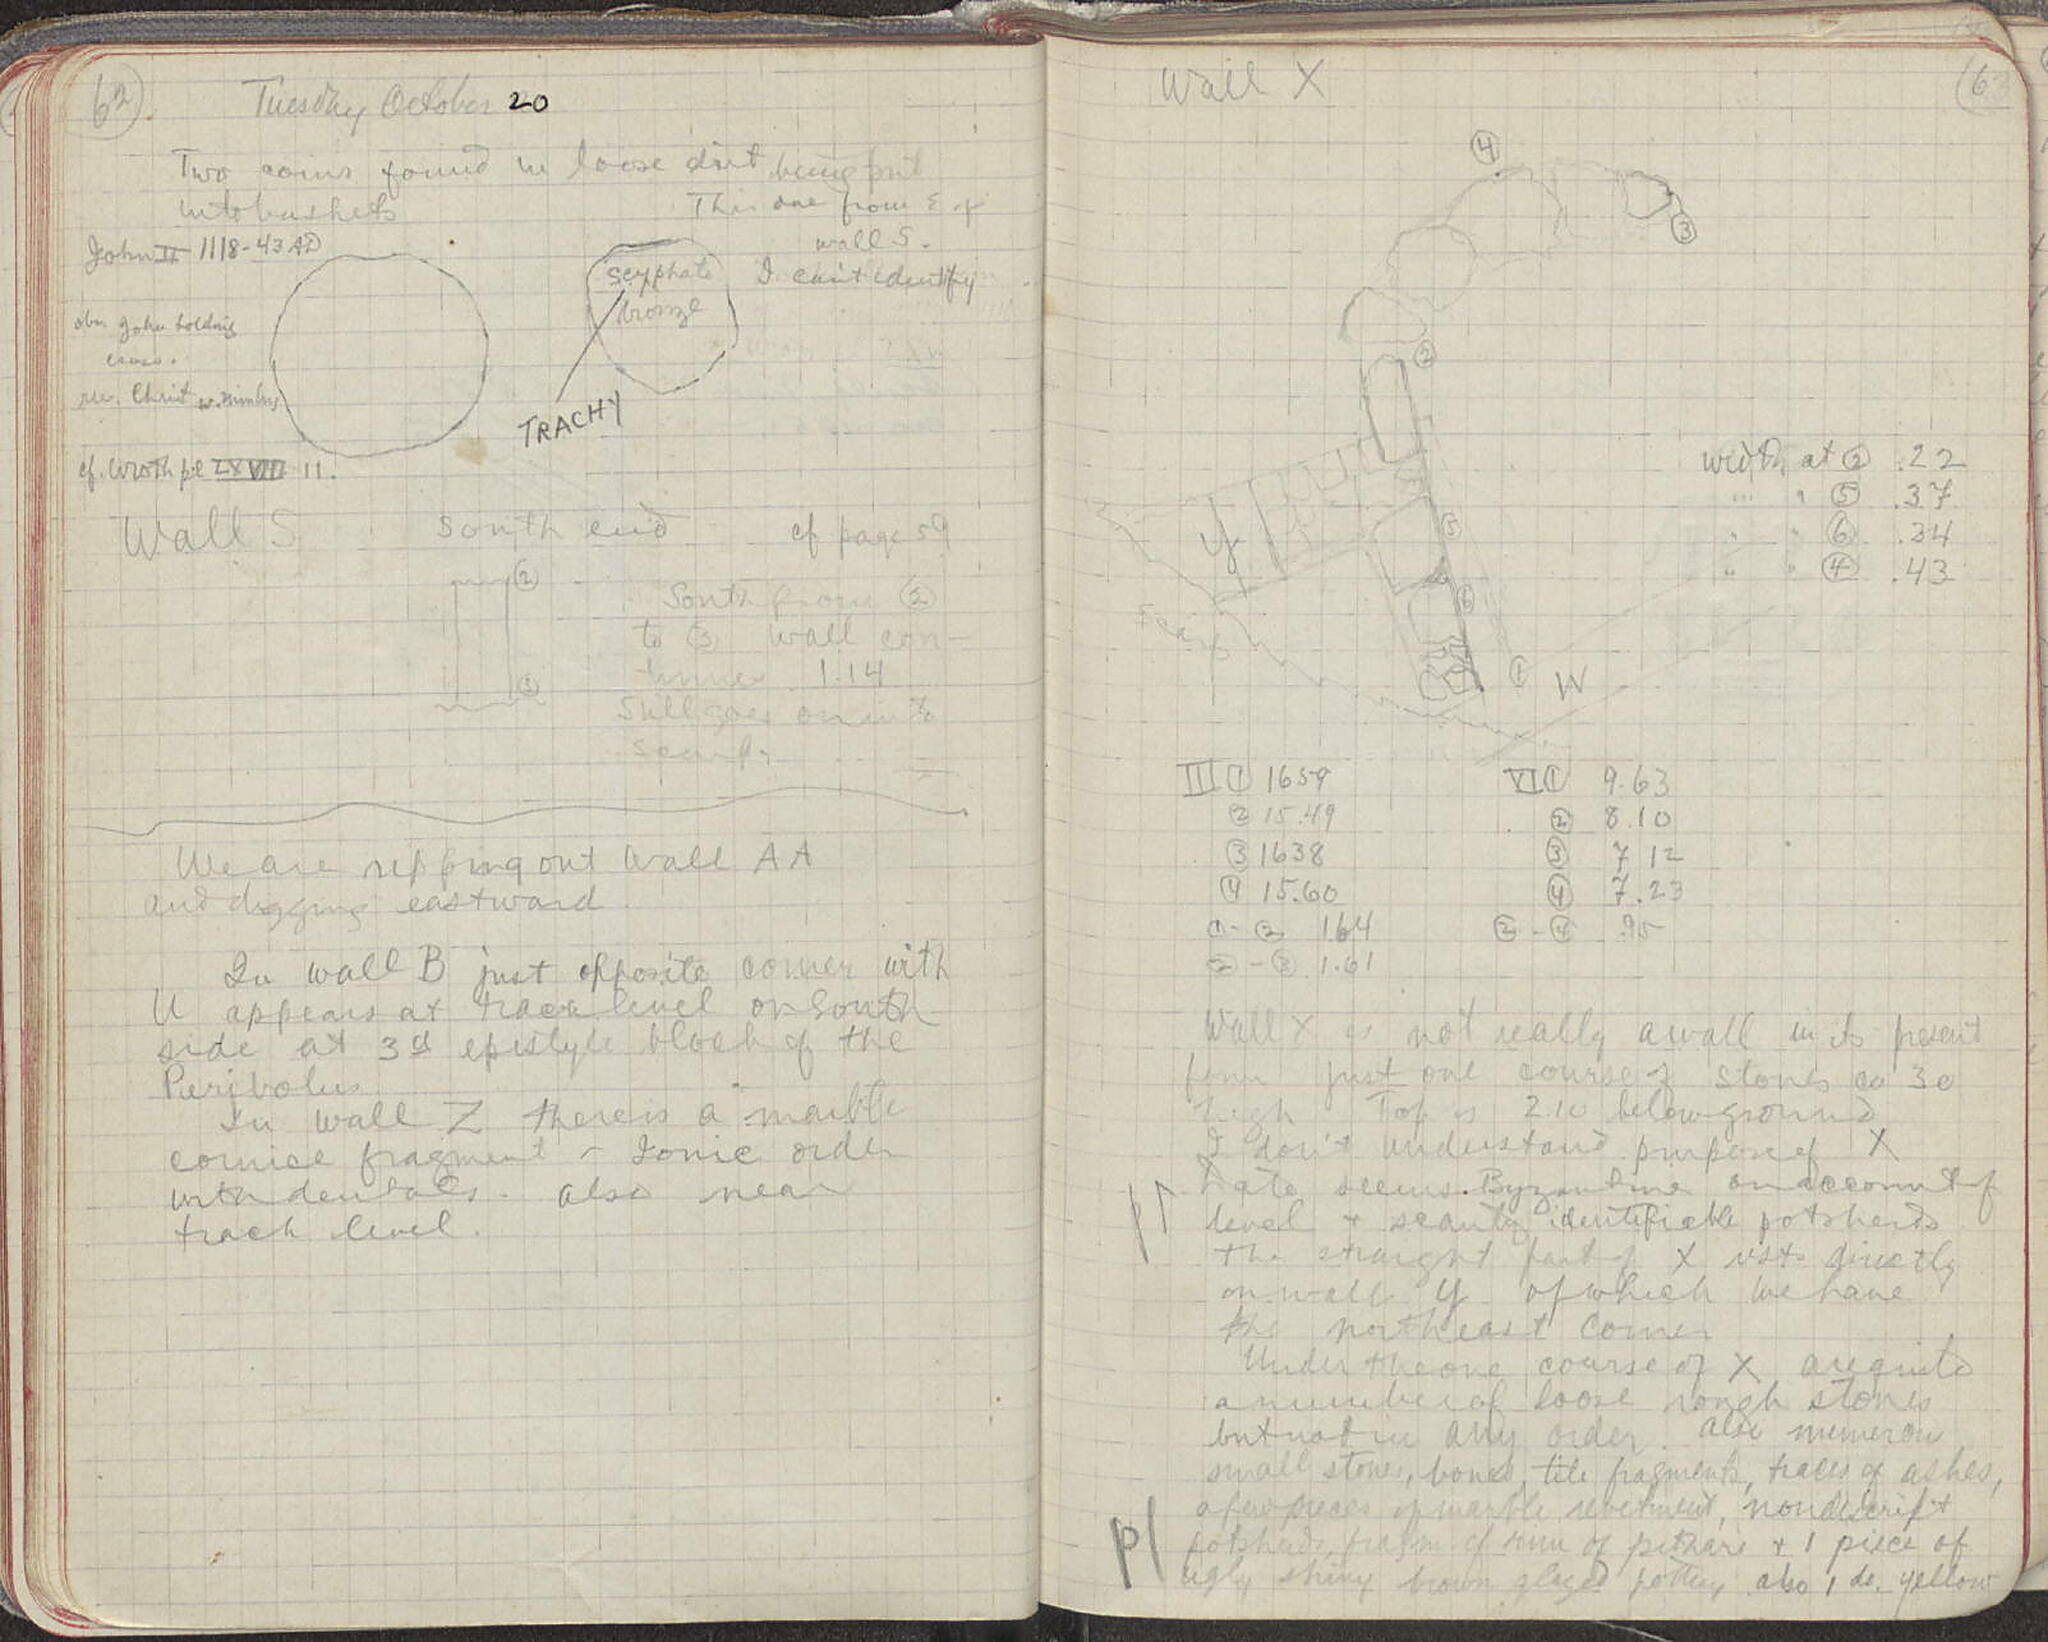 62
Tuesday October 20
Two coins found in loose dirt being put
into baskets
This one from E of
wall S.
I can't identify
John II 1118-43 AD
obv. John holding
cross.
rev. Christ w. nimbus
cf. Wroth pl LXVIII 11.
scyphate
bronze
TRACHY
Wall S South end cf page 59
②
③
South from ②
to ③ wall con-
tinues 1.14
Still goes on into
scarp.
We are ripping out Wall AA
and digging eastward.
In wall B just opposite corner with
U appears at track level on South
side at 3rd epistyle block of the
Peribolus.
In wall Z there is a marble
cornice fragment - Ionic order
with dentals. also near
track level.
Wall X
63
④
③
②
Y
⑤
⑥
Scarp
①
W
width at ② .22
" " ⑤ .37
" " ⑥ .34
" " ④ .43
III ① 1659
② 15.49
③ 1638
④ 15.60
①-② 1.64
②-③ 1.61
VI ① 9.63
② 8.10
③ 7 12
④ 7.23
②-④ .95
Wall X is not really a wall in its present
form just one course of stones ca 30
high Top is 2.10 below ground
I don't understand purpose of X
Date seems Byzantine on account of
level + scanty identifiable potsherds
the straight part of X rests directly
on wall Y of which we have
the northeast corner
Under the one course of X are quite
a number of loose rough stones
but not in any order. also numerous
small stones, bones, tile fragments, traces of ashes,
a few pieces of marble revetment, nondescript
potsherds, fragm of rim of pithari + 1 piece of
ugly shiny brown glazed pottery also 1 do. yellow